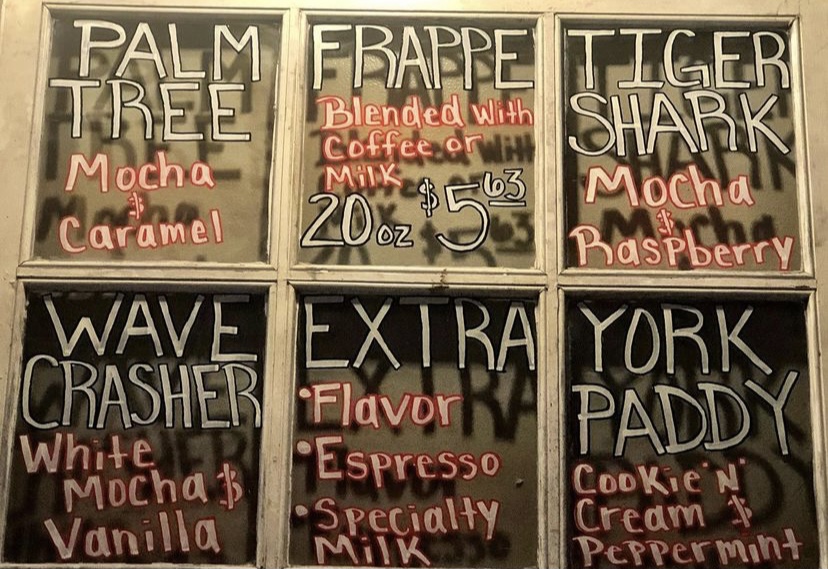 PALM
TREE
Mocha
&
Caramel
FRAPPE
Blended with
Coffee or
Milk
20oz $5.63
TIGER
SHARK
Mocha
&
Raspberry
WAVE
CRASHER
White
Mocha &
Vanilla
EXTRA
•Flavor
•Espresso
•Specialty
Milk
YORK
PADDY
Cookie 'N'
Cream &
Peppermint